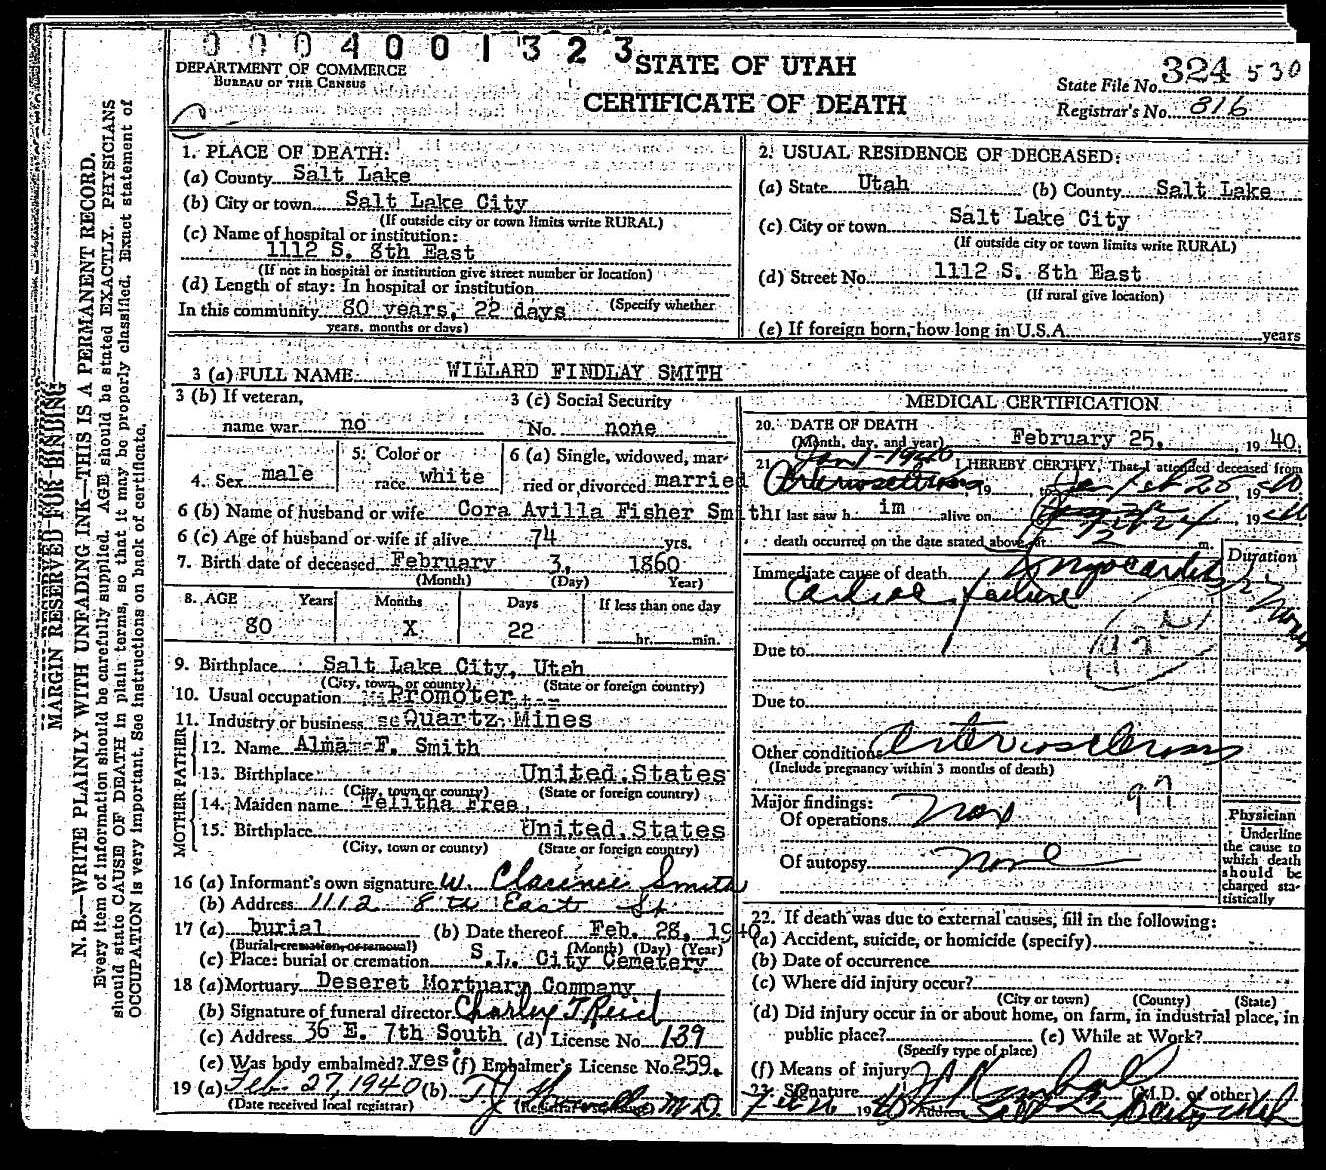 0004001323
DEPARTMENT OF COMMERCE
BUREAU OF THE CENSUS
STATE OF UTAH
CERTIFICATE OF DEATH
State File No. 324 530
Registrar's No. 816
MARGIN RESERVED FOR BINDING
N. B.—WRITE PLAINLY WITH UNFADING INK—THIS IS A PERMANENT RECORD.
Every item of information should be carefully supplied. AGE should be stated EXACTLY. PHYSICIANS
should state CAUSE OF DEATH in plain terms, so that it may be properly classified. Exact statement of
OCCUPATION is very important. See instructions on back of certificate.
1. PLACE OF DEATH:
(a) County Salt Lake
(b) City or town Salt Lake City
(If outside city or town limits write RURAL)
(c) Name of hospital or institution:
1112 S. 8th East
(If not in hospital or institution give street number or location)
(d) Length of stay: In hospital or institution
(Specify whether
In this community 80 years, 22 days
years, months or days)
2. USUAL RESIDENCE OF DECEASED:
(a) State Utah (b) County Salt Lake
(c) City or town Salt Lake City
(If outside city or town limits write RURAL)
(d) Street No. 1112 S. 8th East
(If rural give location)
(e) If foreign born, how long in U.S.A. years
3 (a) FULL NAME WILLARD FINDLAY SMITH
3 (b) If veteran,
name war no
3 (c) Social Security
No. none
4. Sex male
5. Color or
race white
6 (a) Single, widowed, mar-
ried or divorced married
6 (b) Name of husband or wife Cora Avilla Fisher Smith
6 (c) Age of husband or wife if alive 74 yrs.
7. Birth date of deceased February 3, 1860
(Month) (Day) Year)
8. AGE Years Months Days If less than one day
80 X 22 hr. min.
9. Birthplace Salt Lake City, Utah
(City, town, or county) (State or foreign country)
10. Usual occupation Promoter
11. Industry or business Quartz Mines
FATHER
12. Name Alma F. Smith
13. Birthplace United States
(City, town or county) (State or foreign country)
MOTHER
14. Maiden name Telitha Free
15. Birthplace United States
(City, town or county) (State or foreign country)
16 (a) Informant's own signature W. Clarence Smith
(b) Address 1112 8th East St
17 (a) burial (b) Date thereof Feb. 28, 1940
(Burial, cremation, or removal) (Month) (Day) (Year)
(c) Place: burial or cremation S.L. City Cemetery
18 (a) Mortuary Deseret Mortuary Company
(b) Signature of funeral director Charley T Reid
(c) Address 36 E. 7th South (d) License No. 139
(e) Was body embalmed? yes (f) Embalmer's License No. 259.
19 (a) Feb. 27, 1940 (b) T J Howells M.D.
(Date received local registrar) (Registrar's signature)
MEDICAL CERTIFICATION
20. DATE OF DEATH
(Month, day, and year) February 25, 1940
21. Jan 1-1940 I HEREBY CERTIFY, That I attended deceased from
Arteriosclerosis 19 to Feb 25, 1940
I last saw him alive on Feb 24, 1940
death occurred on the date stated above, at 2 m.
Duration
Immediate cause of death Myocarditis
Cardiac failure
Due to
Due to
Other conditions Arteriosclerosis
(Include pregnancy within 3 months of death)
97
Major findings:
Of operations
Of autopsy none
Physician
Underline
the cause to
which death
should be
charged sta-
tistically
22. If death was due to external causes, fill in the following:
(a) Accident, suicide, or homicide (specify)
(b) Date of occurrence
(c) Where did injury occur?
(City or town) (County) (State)
(d) Did injury occur in or about home, on farm, in industrial place, in
public place? (e) While at Work?
(Specify type of place)
(f) Means of injury
23. Signature (M.D. or other)
Feb 26 1940 Address Salt Lake City Utah